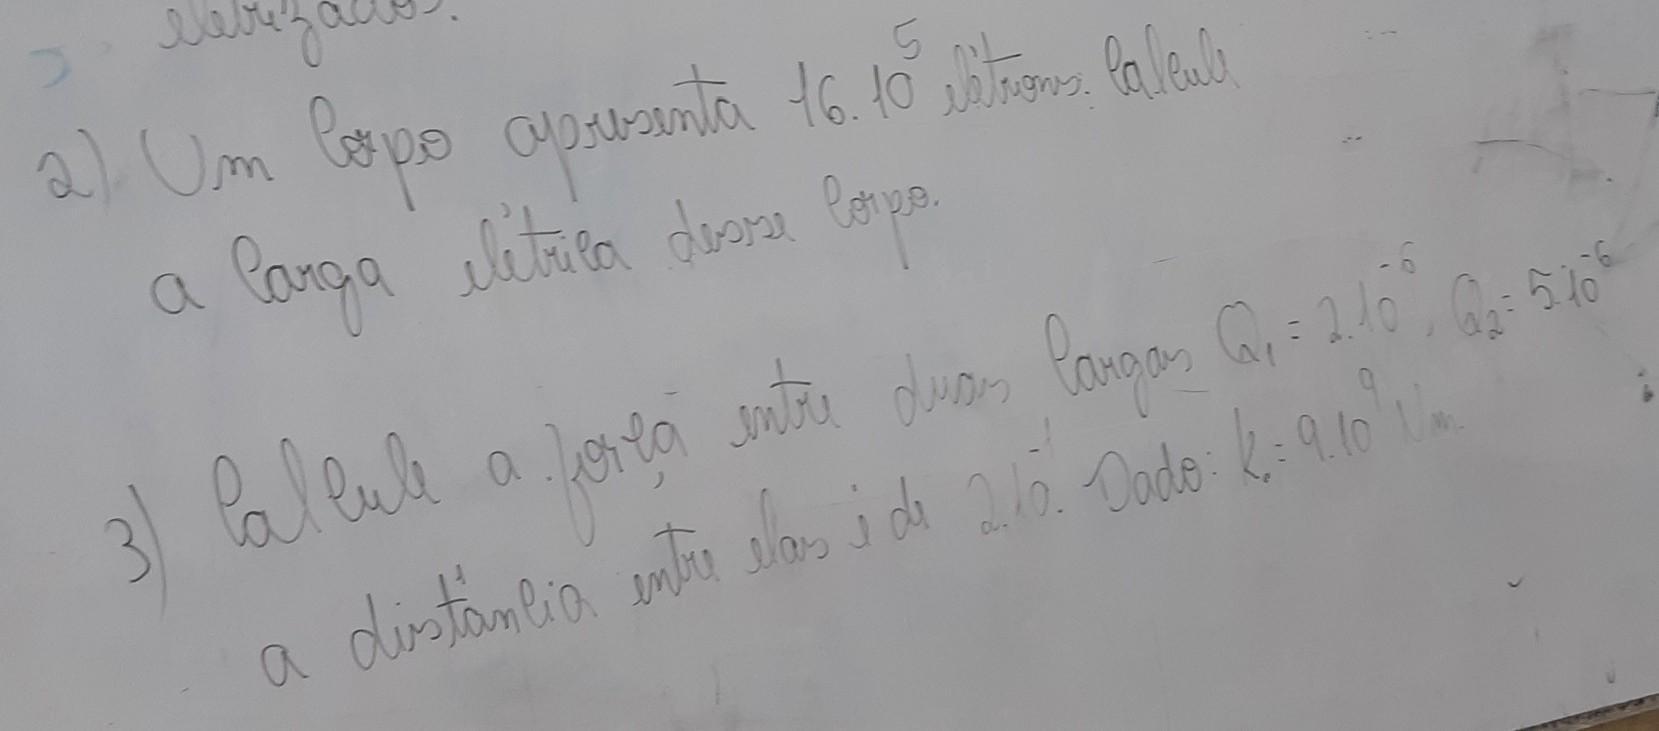 eletrizados.
2) Um Corpo apresenta 16.10⁵ elétrons. Calcule
a Carga elétrica desse Corpo.
3) Calcule a força entre duas Cargas Q₁ = 2.10⁻⁶, Q₂ = 5.10⁻⁶
a distância entre elas é de 2.10⁻¹. Dado: K₀ = 9.10⁹ Nm